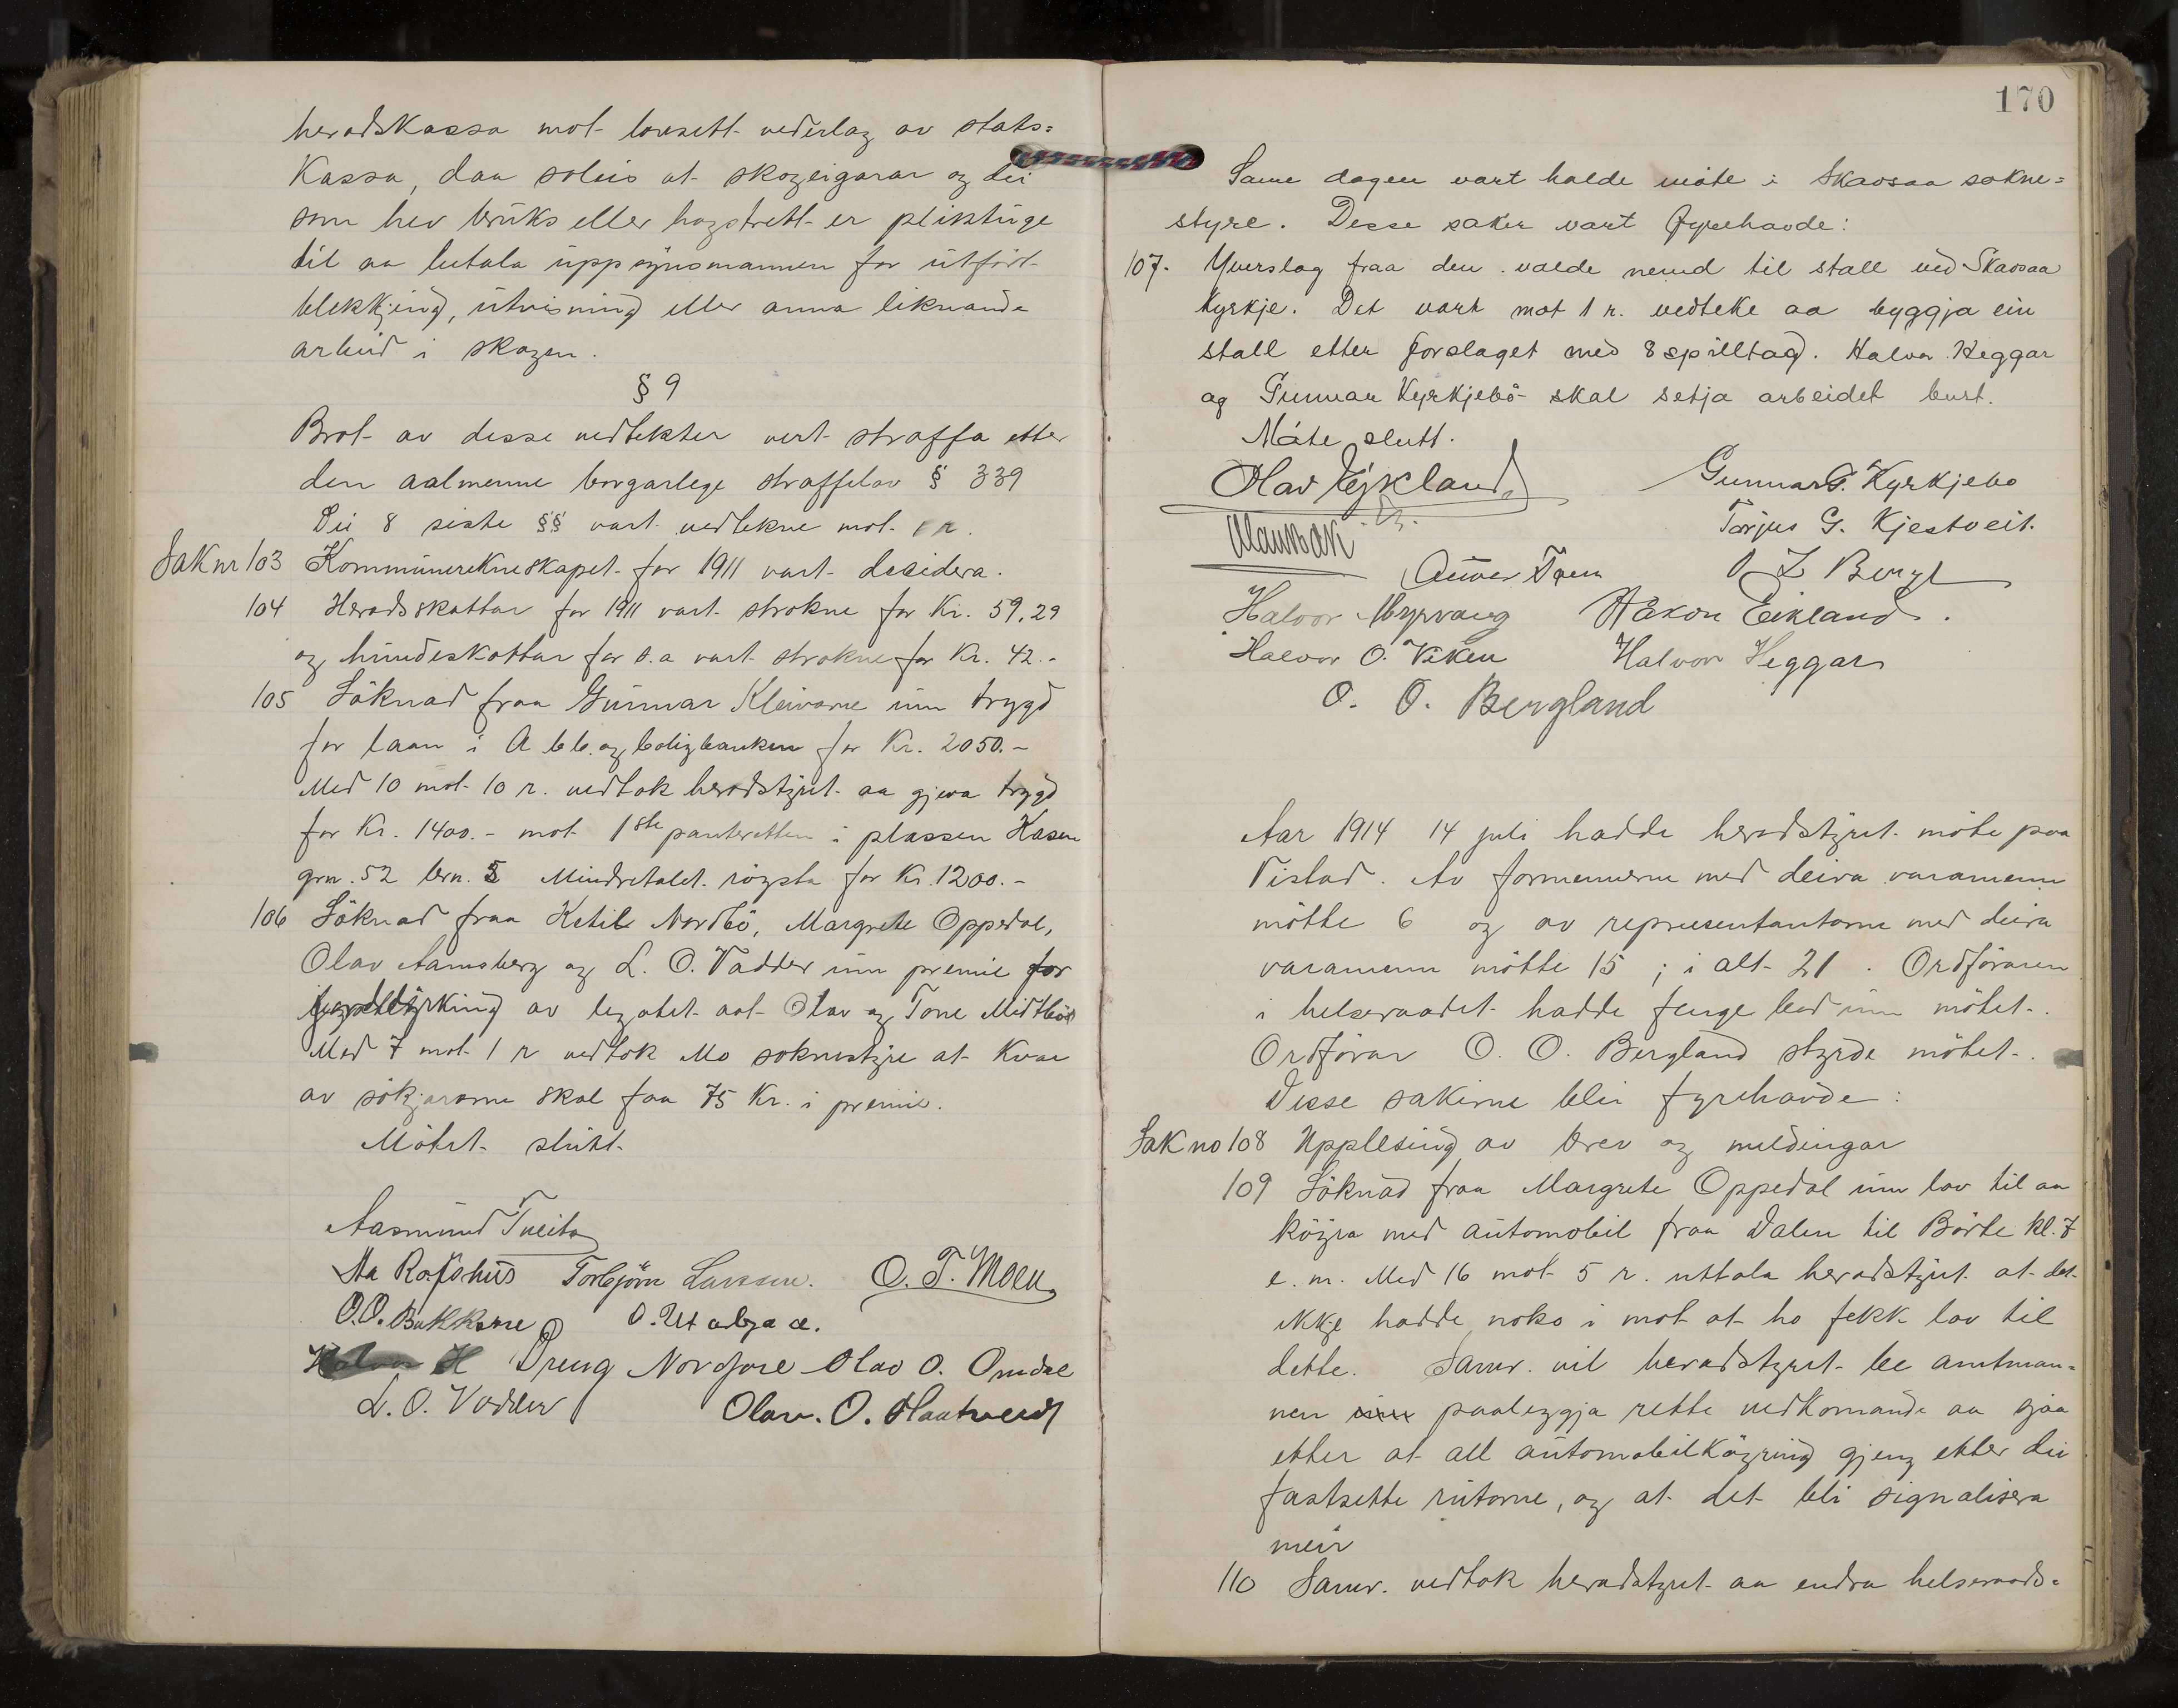 heradskassa mot lovsett vederlag av stats=
kassa, daa soleis at skogeigarar og dei
som hev bruks eller hogstrett er pliktuge
til aa betala uppsynsmannen for utfört
blekkjing, utvisning eller anna liknande
arbeid i skogen.
§ 9
Brot av desse vedtekter vert straffa etter
den aalmenne borgarlege straffelov § 339
Dei 8 siste §§ vart vedtekne mot 1 r.
Sak nr 103 Kommunerekneskapet for 1911 vart decidera.
104 Heradsskattar for 1911 vart strokne for Kr. 59.29
og hundeskattar for s.a vart strokne for Kr. 42.-
105 Söknad fraa Gunnar Kleivane um trygd
for laan i A bb. og boligbanken for Kr. 2050.-
Med 10 mot 10 r. vedtok heradstyret aa gjeva trygd
for Kr. 1400.- mot 1ste panteretten i plassen Kasen
grn. 52 brn. 5 Mindretalet röysta for Kr. 1200.-
106 Söknad fraa Ketil Nordbö, Margrete Oppedal,
Olav Aamsberg og L. O. Vadder um premie for
av legatet aat Olav og Tone Midtbö
Med 7 mot 1 r vedtok Mo soknestyre at kvar
av sökjarane skal faa 75 Kr. i premie.
Mötet slutt.
Aasmund Tveito
Aa Rafshus Torbjörn Larssen. O. T. Moen
O.O. Bakkane O. Utabjaa.
Halvor H Dreng Nordjore Olav O. Omdal
L. O. Vadder Olav. O. Haatveedt
170
Same dagen vart halde möte i Skavsaa sokne=
styre. Desse saker vart fyrehavde:
107. Yverslag fraa den valde nemd til stall ved Skavsaa
kyrkje. Det vart mot 1 r. vedteke aa byggja ein
stall etter forslaget med 8 spilltog. Halvor Heggar
og Gunnar Kyrkjebö skal setja arbeidet burt.
Möte slutt.
Olav Eykland Gunnar G. Kyrkjebö
Tarjus G. Kjestveit.
Anver Tveen O Z Bergl
Halvor Myrvang Håkon Eikland.
Halvor O. Viken Halvor Heggar
O. O. Bergland
Aar 1914 14 juli hadde heradstyret möte paa
Vistad. Av formennerne med deira varamenn
mötte 6 og av representantarne med deira
varamenn mötte 15; i alt 21. Ordföraren
i helseraadet hadde fenge bod um mötet.
Ordförar O. O. Bergland styrde mötet.
Desse sakerne blei fyrehavde:
Sak no 108 Upplesing av brev og meldingar
109 Söknad fraa Margrete Oppedal um lov til aa
köyra med automobil fraa Dalen til Börte kl. 7
e. m. Med 16 mot 5 r. uttala heradstyret at det
ikkje hadde noko i mot at ho fekk lov til
dette. Samr. vil heradstyret be amtman=
nen paaleggja rette vedkomande aa sjaa
etter at all automobilköyring gjeng etter dei
fastsette rutorne, og at det bli signalisera
meir
110 Samr. vedtok heradstyret aa endra helseraads=